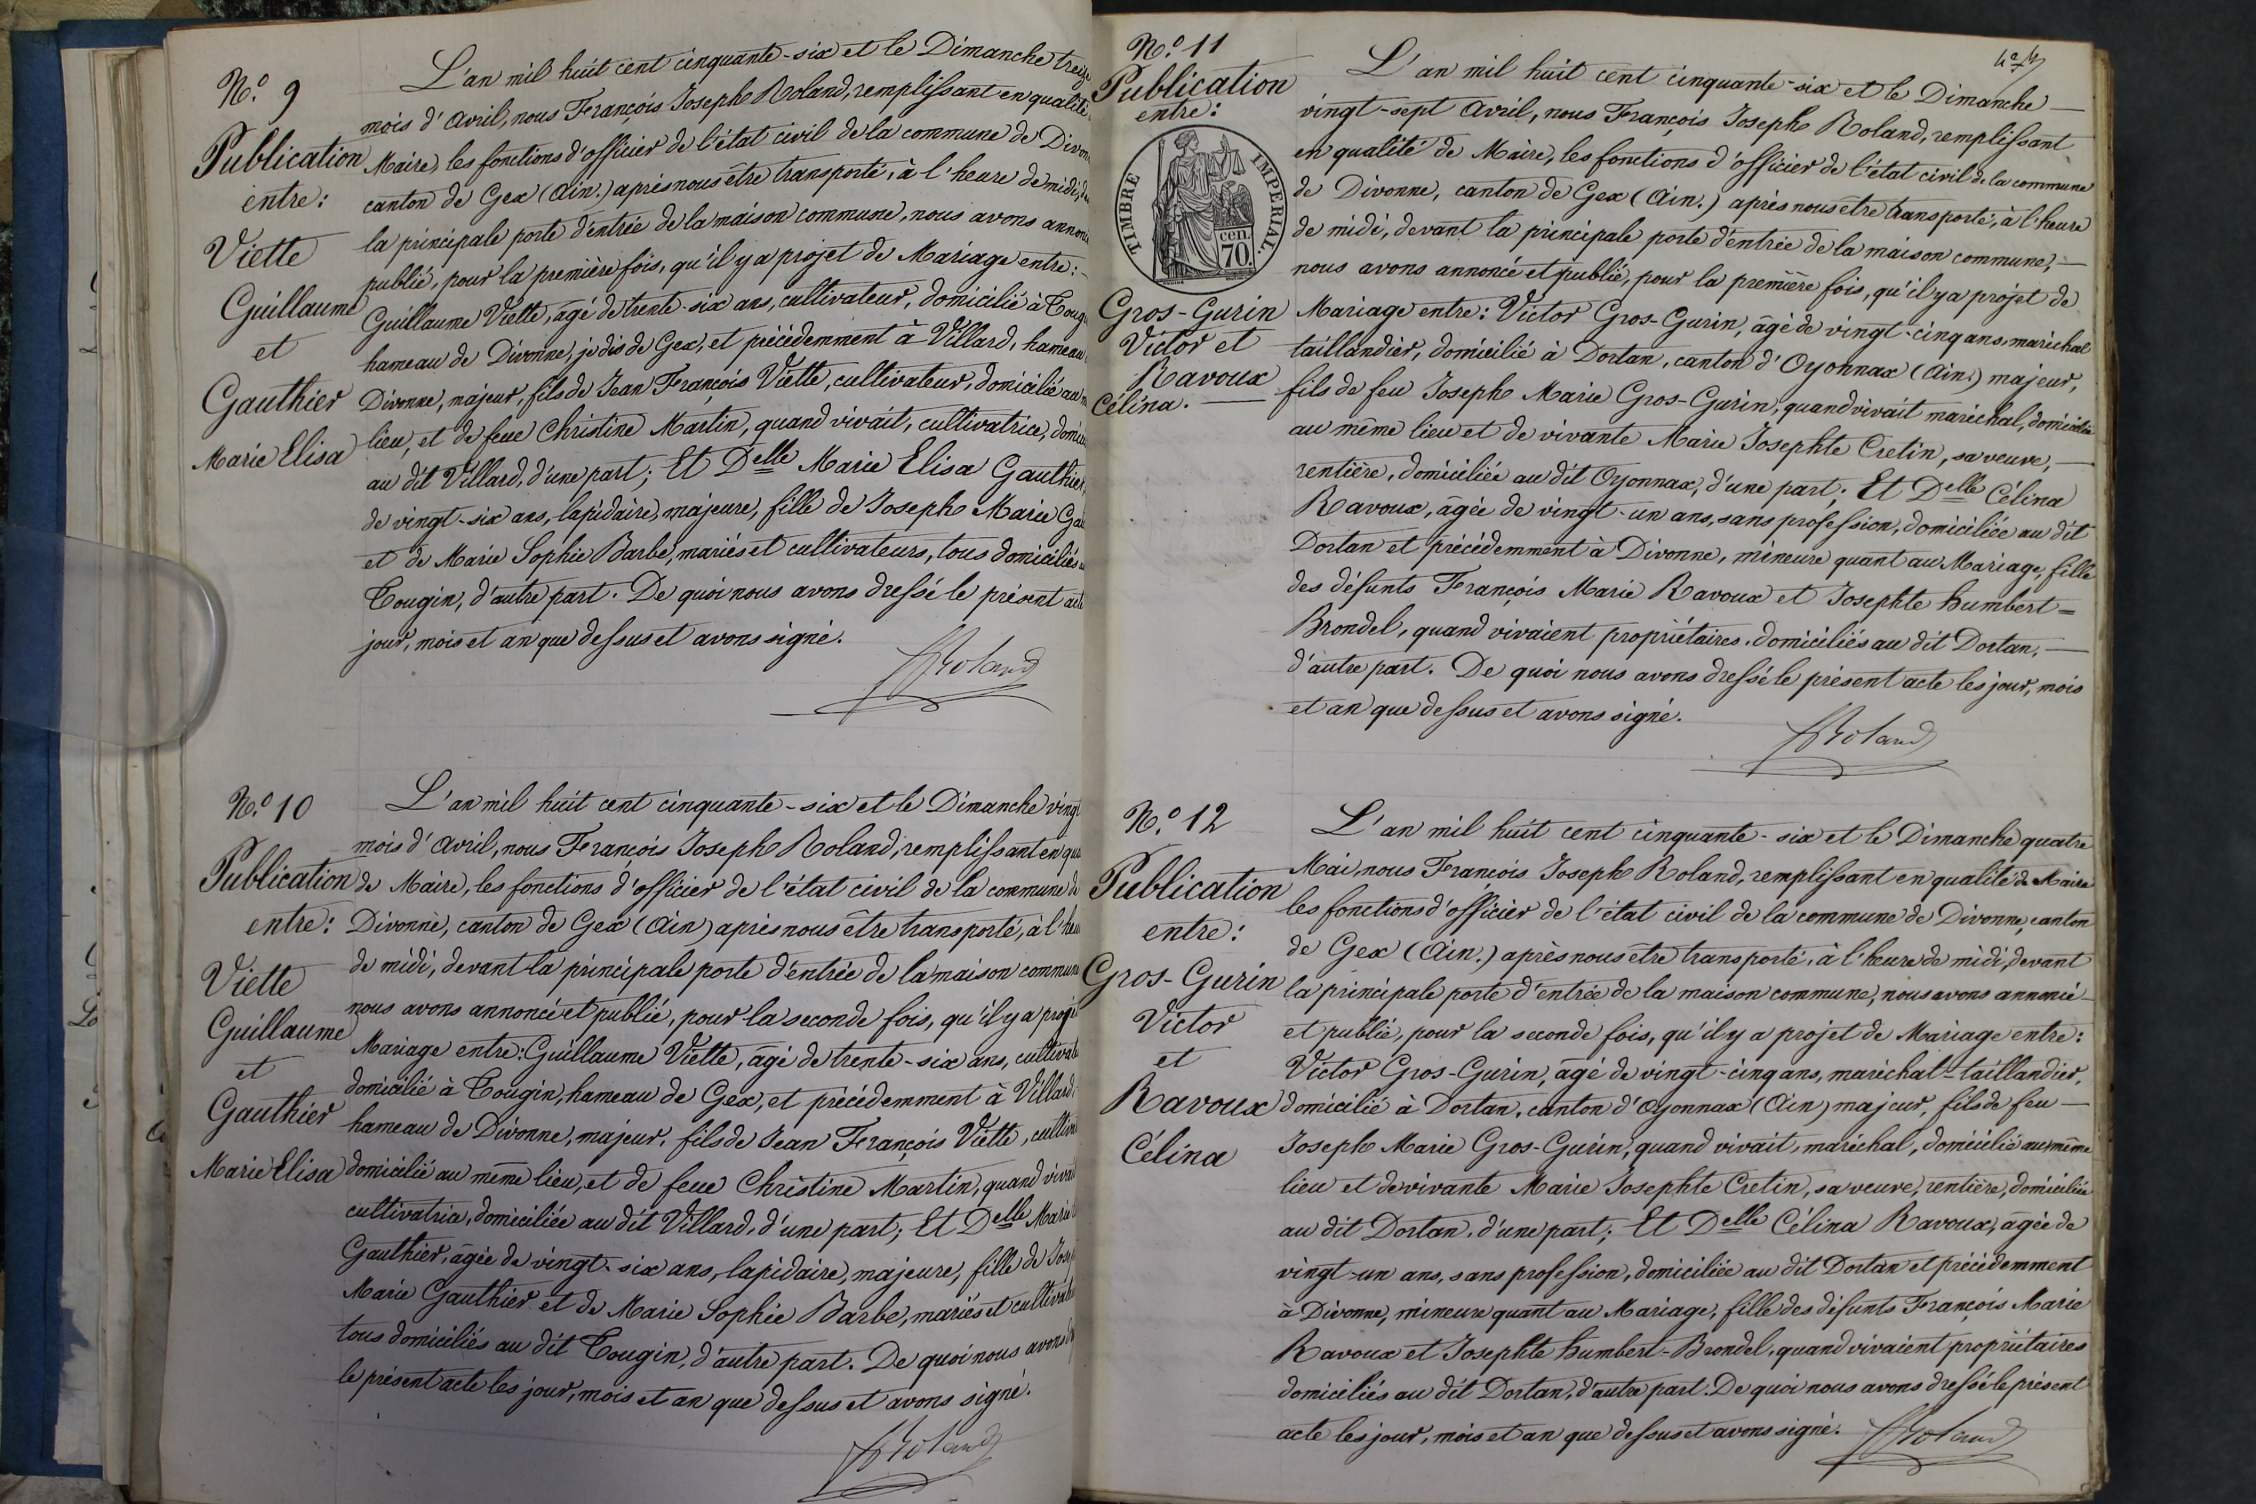 N.º 9
Publication
entre:
Viette
Guillaume
et
Gauthier
Marie Elisa
L'an mil huit cent cinquante-six et le Dimanche treize
mois d'Avril, nous François Joseph Roland, remplissant en qualité
Maire, les fonctions d'officier de l'état civil de la commune de Divonne
canton de Gex (Ain.) après nous être transporté, à l'heure de midi,
la principale porte d'entrée de la maison commune, nous avons annoncé
publié, pour la première fois, qu'il y a projet de Mariage entre:
Guillaume Viette, âgé de trente-six ans, cultivateur, domicilié à Tougin
hameau de Divonne, je dis de Gex, et précédemment à Villard, hameau
Divonne, majeur, fils de Jean François Viette, cultivateur, domicilié au
lieu, et de feue Christine Martin, quand vivait, cultivatrice,
au dit Villard, d'une part; Et Delle Marie Elisa Gauthier,
de vingt-six ans, lapidaire, majeure, fille de Joseph Marie
et de Marie Sophie Barbe, mariés et cultivateurs, tous domiciliés
Tougin, d'autre part. De quoi nous avons dressé le présent acte
jour, mois et an que dessus et avons signé.
Roland
N.º 10
Publication
entre:
Viette
Guillaume
et
Gauthier
Marie Elisa
L'an mil huit cent cinquante-six et le Dimanche vingt
mois d'Avril, nous François Joseph Roland, remplissant en
de Maire, les fonctions d'officier de l'état civil de la commune de
Divonne, canton de Gex (Ain) après nous être transporté, à l'heure
de midi, devant la principale porte d'entrée de la maison commune
nous avons annoncé et publié, pour la seconde fois, qu'il y a projet
Mariage entre: Guillaume Viette, âgé de trente-six ans,
domicilié à Tougin, hameau de Gex, et précédemment à Villard,
hameau de Divonne, majeur, fils de Jean François Viette,
domicilié au même lieu, et de feue Christine Martin, quand vivait
cultivatrice, domiciliée au dit Villard, d'une part; Et Delle Marie
Gauthier, âgée de vingt-six ans, lapidaire, majeure, fille de
Marie Gauthier et de Marie Sophie Barbe, mariés et
tous domiciliés au dit Tougin, d'autre part. De quoi nous avons
le présent acte les jour, mois et an que dessus et avons signé.
Roland
N.º 11
Publication
entre:
TIMBRE IMPÉRIAL.
cen.
70.
Gros-Gurin
Victor et
Ravoux
Célina.
L'an mil huit cent cinquante-six et le Dimanche
vingt-sept Avril, nous François Joseph Roland, remplissant
en qualité de Maire, les fonctions d'officier de l'état civil de la commune
de Divonne, canton de Gex (Ain.) après nous être transporté, à l'heure
de midi, devant la principale porte d'entrée de la maison commune,
nous avons annoncé et publié, pour la première fois, qu'il y a projet de
Mariage entre: Victor Gros-Gurin, âgé de vingt-cinq ans, maréchal
taillandier, domicilié à Dortan, canton d'Oyonnax (Ain.) majeur,
fils de feu Joseph Marie Gros-Gurin, quand vivait maréchal, domicilié
au même lieu et de vivante Marie Josephte Cretin, sa veuve,
rentière, domiciliée au dit Oyonnax, d'une part; Et Delle Célina
Ravoux, âgée de vingt-un ans, sans profession, domiciliée au dit
Dortan et précédemment à Divonne, mineure quant au Mariage, fille
des défunts François Marie Ravoux et Josephte humbert=
Brondel, quand vivaient propriétaires, domiciliés au dit Dortan,
d'autre part. De quoi nous avons dressé le présent acte les jour, mois
et an que dessus et avons signé.
Roland
N.º 12
Publication
entre:
Gros-Gurin
Victor
et
Ravoux
Célina
L'an mil huit cent cinquante-six et le Dimanche quatre
Mai, nous François Joseph Roland, remplissant en qualité de Maire
les fonctions d'officier de l'état civil de la commune de Divonne, canton
de Gex (Ain.) après nous être transporté, à l'heure de midi, devant
la principale porte d'entrée de la maison commune, nous avons annoncé
et publié, pour la seconde fois, qu'il y a projet de Mariage entre:
Victor Gros-Gurin, âgé de vingt-cinq ans, maréchal-taillandier,
domicilié à Dortan, canton d'Oyonnax (Ain) majeur, fils de feu
Joseph Marie Gros-Gurin, quand vivait, maréchal, domicilié au même
lieu et de vivante Marie Josephte Cretin, sa veuve, rentière, domiciliée
au dit Dortan, d'une part; Et Delle Célina Ravoux, âgée de
vingt-un ans, sans profession, domiciliée au dit Dortan et précédemment
à Divonne, mineure quant au Mariage, fille des défunts François Marie
Ravoux et Josephte humbert-Brondel, quand vivaient propriétaires
domiciliés au dit Dortan, d'autre part. De quoi nous avons dressé le présent
acte les jour, mois et an que dessus et avons signé.
Roland